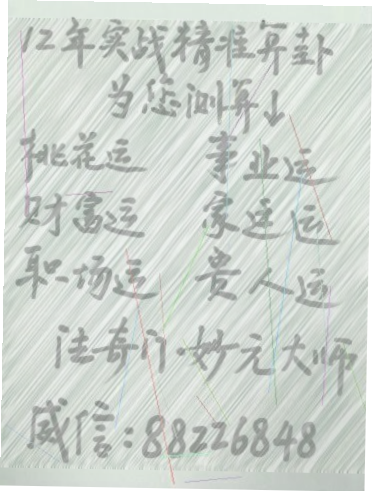 12年实战精准算卦
为您测算↓
桃花运 事业运
财富运 家庭运
职场运 贵人运
法奇门·妙元大师
威信:88226848